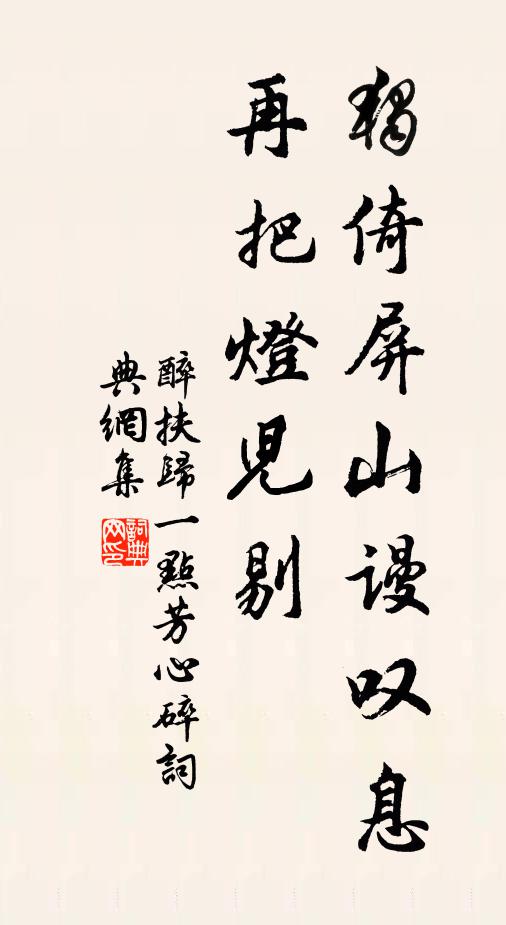 獨倚屏山謾叹息
再把燈兒剔
醉扶歸一點芳心碎詞
典網集
詞典网印